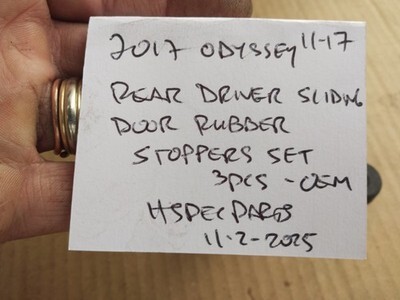 2017 ODYSSEY 11-17
REAR DRIVER SLIDING
DOOR RUBBER
STOPPERS SET
3PCS - OEM
HSPECPARTS
11-2-2025